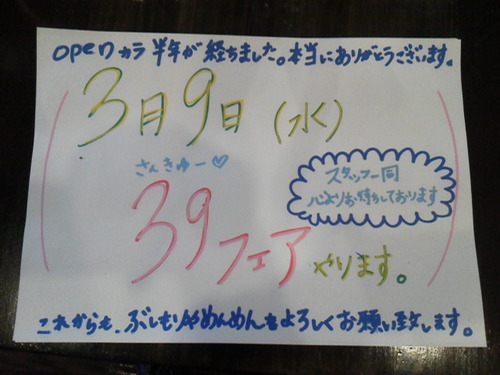 openカラ半年が経ちました。本当にありがとうございます。
3月9日(水)
さんきゅー♡
39フェアやります。
スタッフ一同
心よりお待ちしております
これからも、ぶしもりやめんめんをよろしくお願い致します。